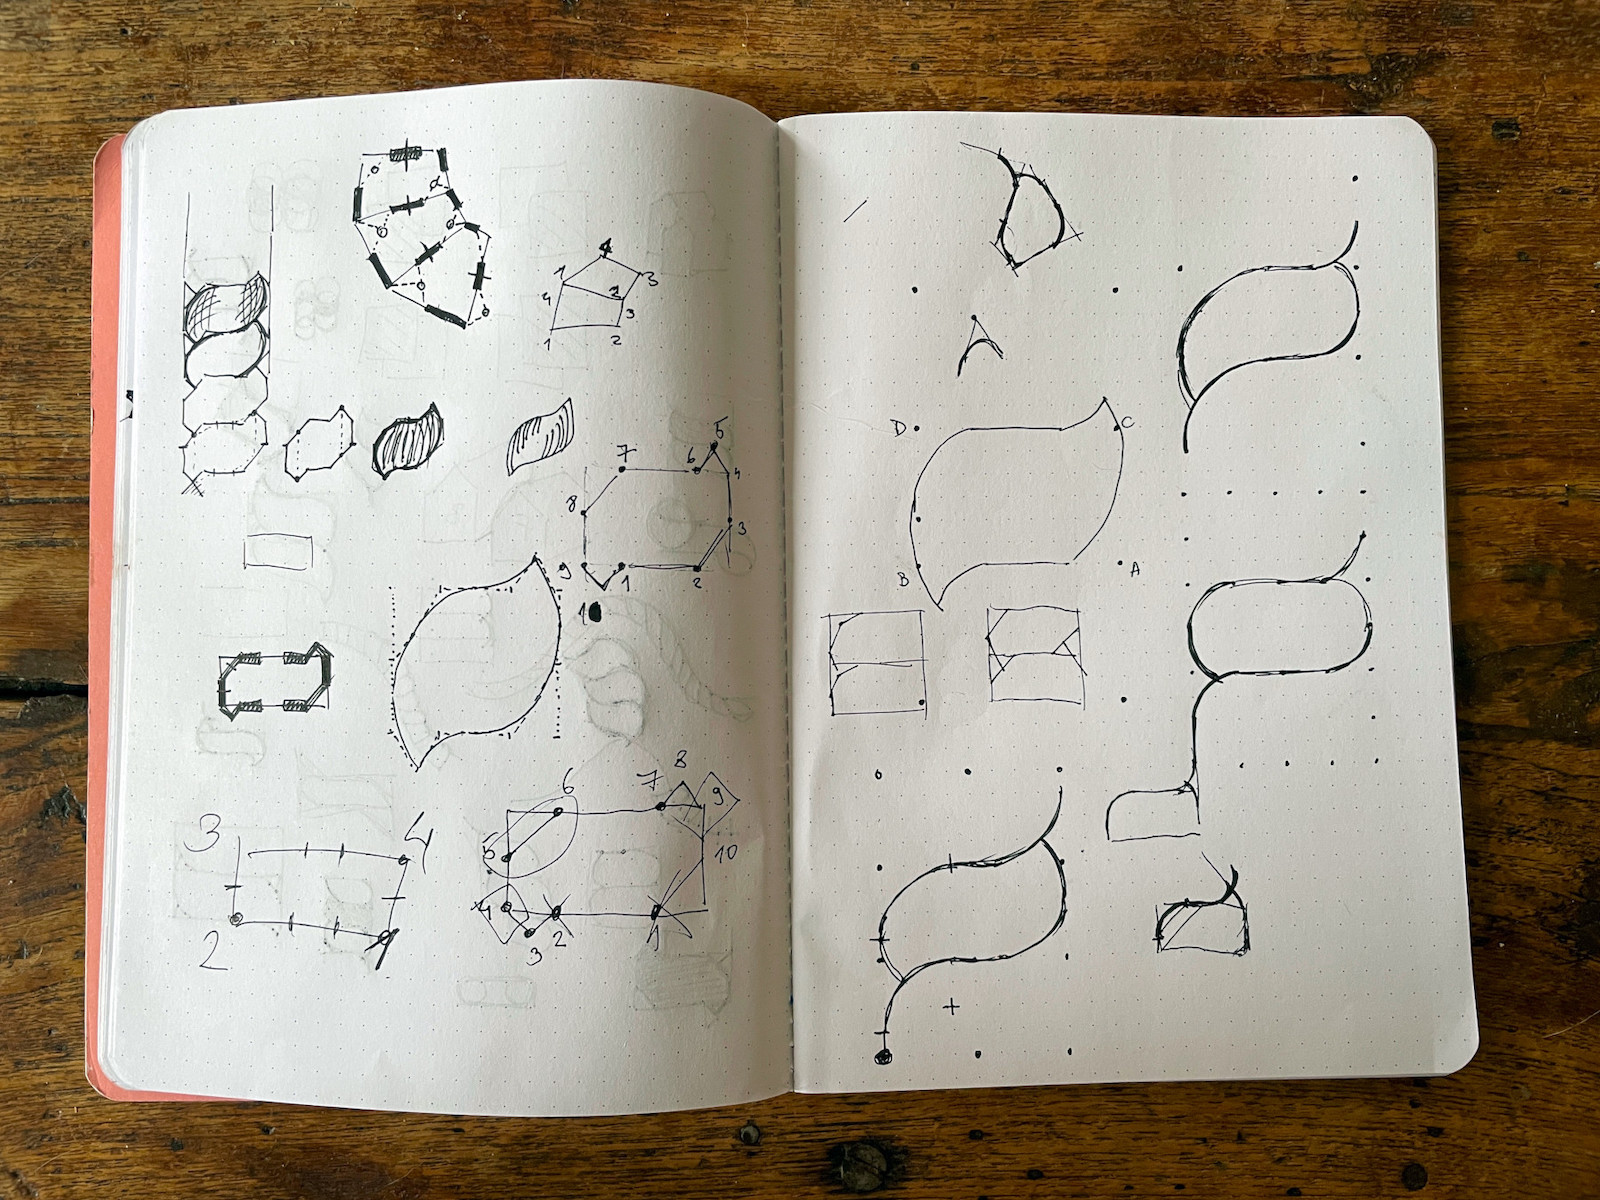 4
1
3
4
2
3
1
2
5
7
6
4
8
3
9
1
2
10
3
4
2
1
6
7
8
9
5
10
4
3
2
1
D
C
B
A